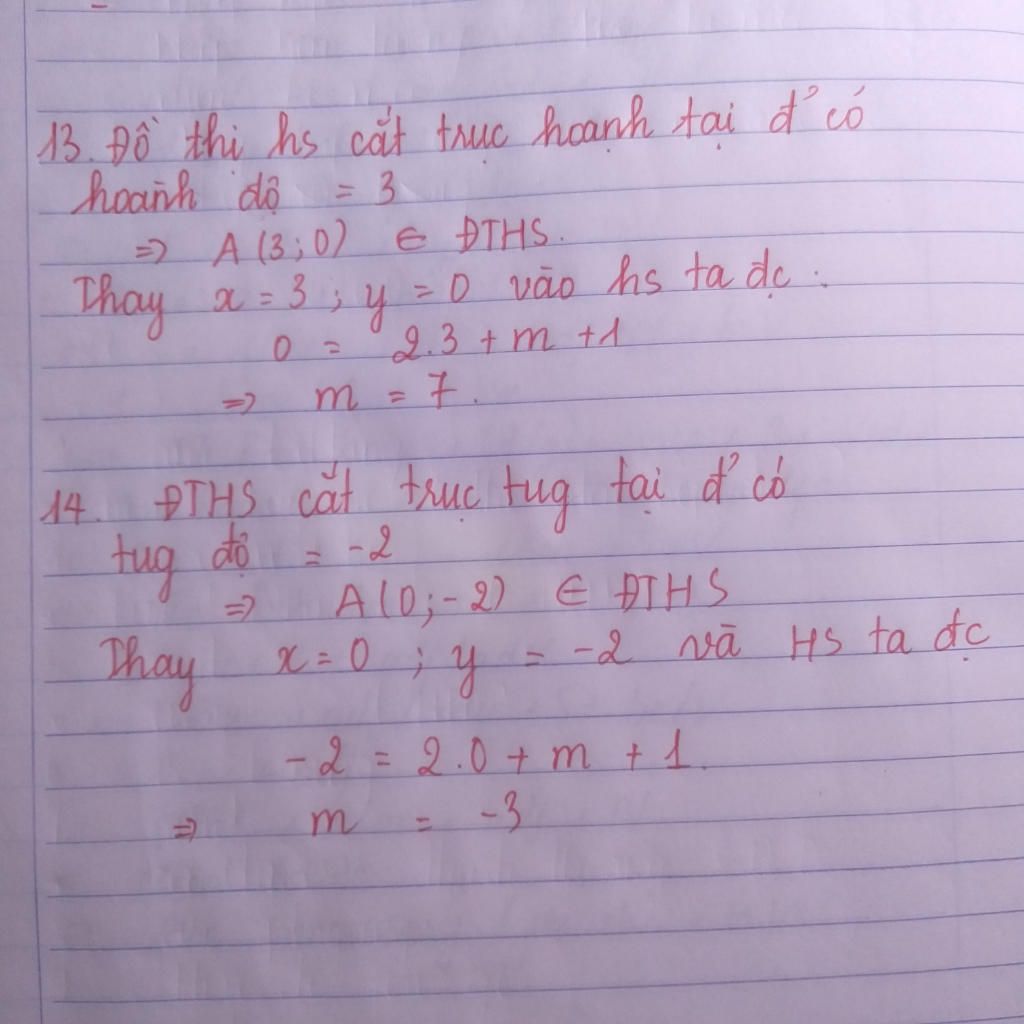 13. Đồ thị hs cắt trục hoạnh tại đ' có
hoành độ = 3
=> A(3;0) ∈ ĐTHS.
Thay x = 3 ; y = 0 vào hs ta đc :
0 = 2.3 + m + 1
=> m = 7.
14. ĐTHS cắt trục tug tại đ' có
tug độ = -2
=> A(0;-2) ∈ ĐTHS
Thay x = 0 ; y = -2 và HS ta đc
-2 = 2.0 + m + 1.
=> m = -3